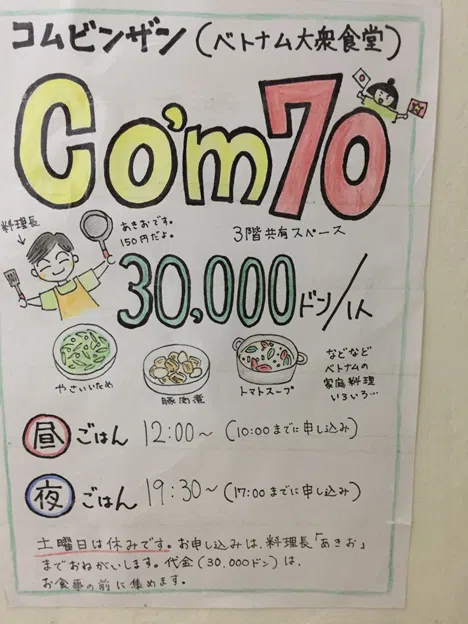 コムビンザン(ベトナム大衆食堂)
Co'm70
料理長
あきおです。
150円だよ。
3階共有スペース
30,000ドン/1人
やさいいため
豚肉煮
トマトスープ
などなど
ベトナムの
家庭料理
いろいろ…
昼ごはん 12:00~(10:00までに申し込み)
夜ごはん 19:30~(17:00までに申し込み)
土曜日は休みです。お申し込みは、料理長「あきお」
までおねがいします。代金(30,000ドン)は、
お食事の前に集めます。